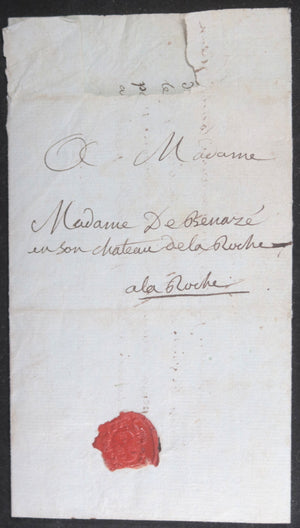 A Madame
Madame De Benazé
en son chateau de la Roche
a la Roche